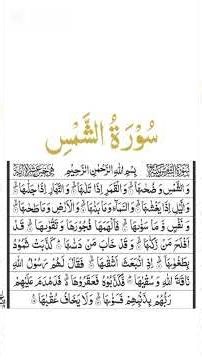 سُورَةُ الشَّمْسِ
بِسْمِ اللّٰهِ الرَّحْمٰنِ الرَّحِيْمِ
وَالشَّمْسِ وَضُحٰىهَا ۞ وَالْقَمَرِ اِذَا تَلٰىهَا ۞ وَالنَّهَارِ اِذَا جَلّٰىهَا ۞
وَالَّيْلِ اِذَا يَغْشٰىهَا ۞ وَالسَّمَآءِ وَمَا بَنٰىهَا ۞ وَالْاَرْضِ وَمَا طَحٰىهَا ۞
وَنَفْسٍ وَّمَا سَوّٰىهَا ۞ فَاَلْهَمَهَا فُجُوْرَهَا وَتَقْوٰىهَا ۞ قَدْ
اَفْلَحَ مَنْ زَكّٰىهَا ۞ وَقَدْ خَابَ مَنْ دَسّٰىهَا ۞ كَذَّبَتْ ثَمُوْدُ
بِطَغْوٰىهَا ۞ اِذِ انْۢبَعَثَ اَشْقٰىهَا ۞ فَقَالَ لَهُمْ رَسُوْلُ اللّٰهِ
نَاقَةَ اللّٰهِ وَسُقْيٰهَا ۞ فَكَذَّبُوْهُ فَعَقَرُوْهَا ۞ فَدَمْدَمَ عَلَيْهِمْ
رَبُّهُمْ بِذَنْۢبِهِمْ فَسَوّٰىهَا ۞ وَلَا يَخَافُ عُقْبٰهَا ۞